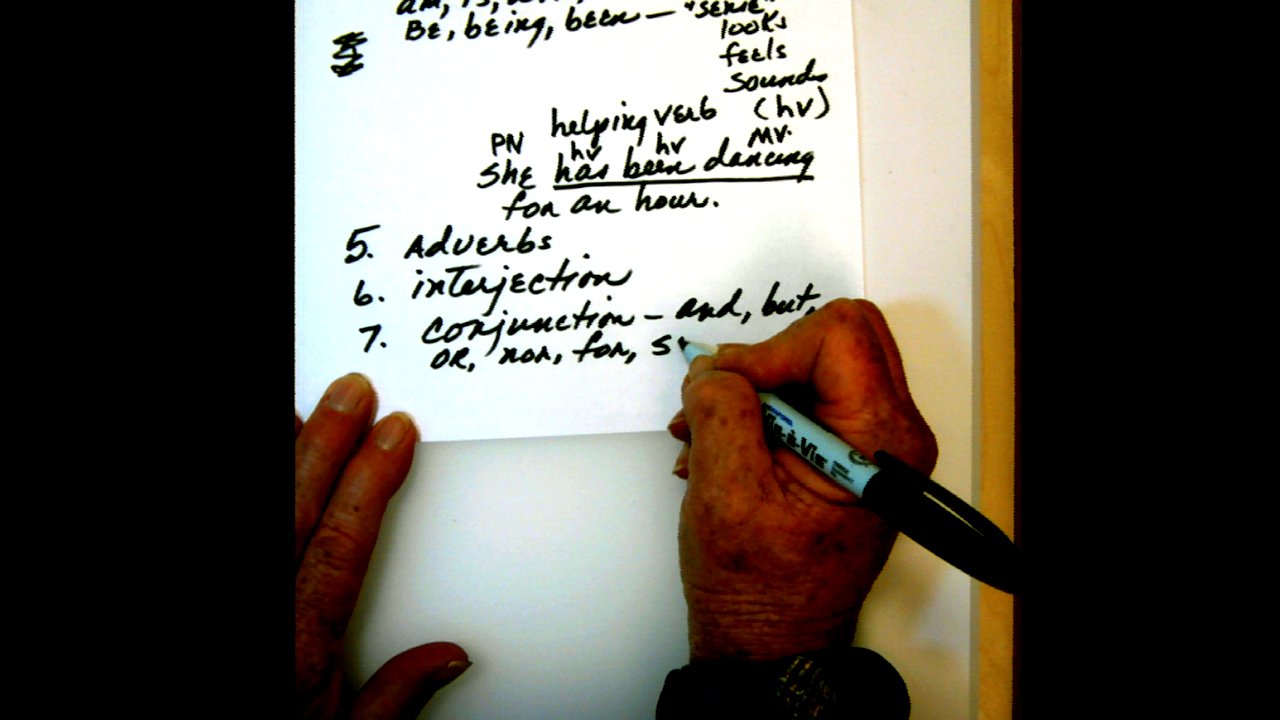 am, is,
BE, being, been — "sense"
looks
feels
sounds
helping verb (hv)
PN hv hv MV.
She has been dancing
for an hour.
5. Adverbs
6. interjection
7. Conjunction – and, but,
OR, nor, for, s
Vis-à-Vis